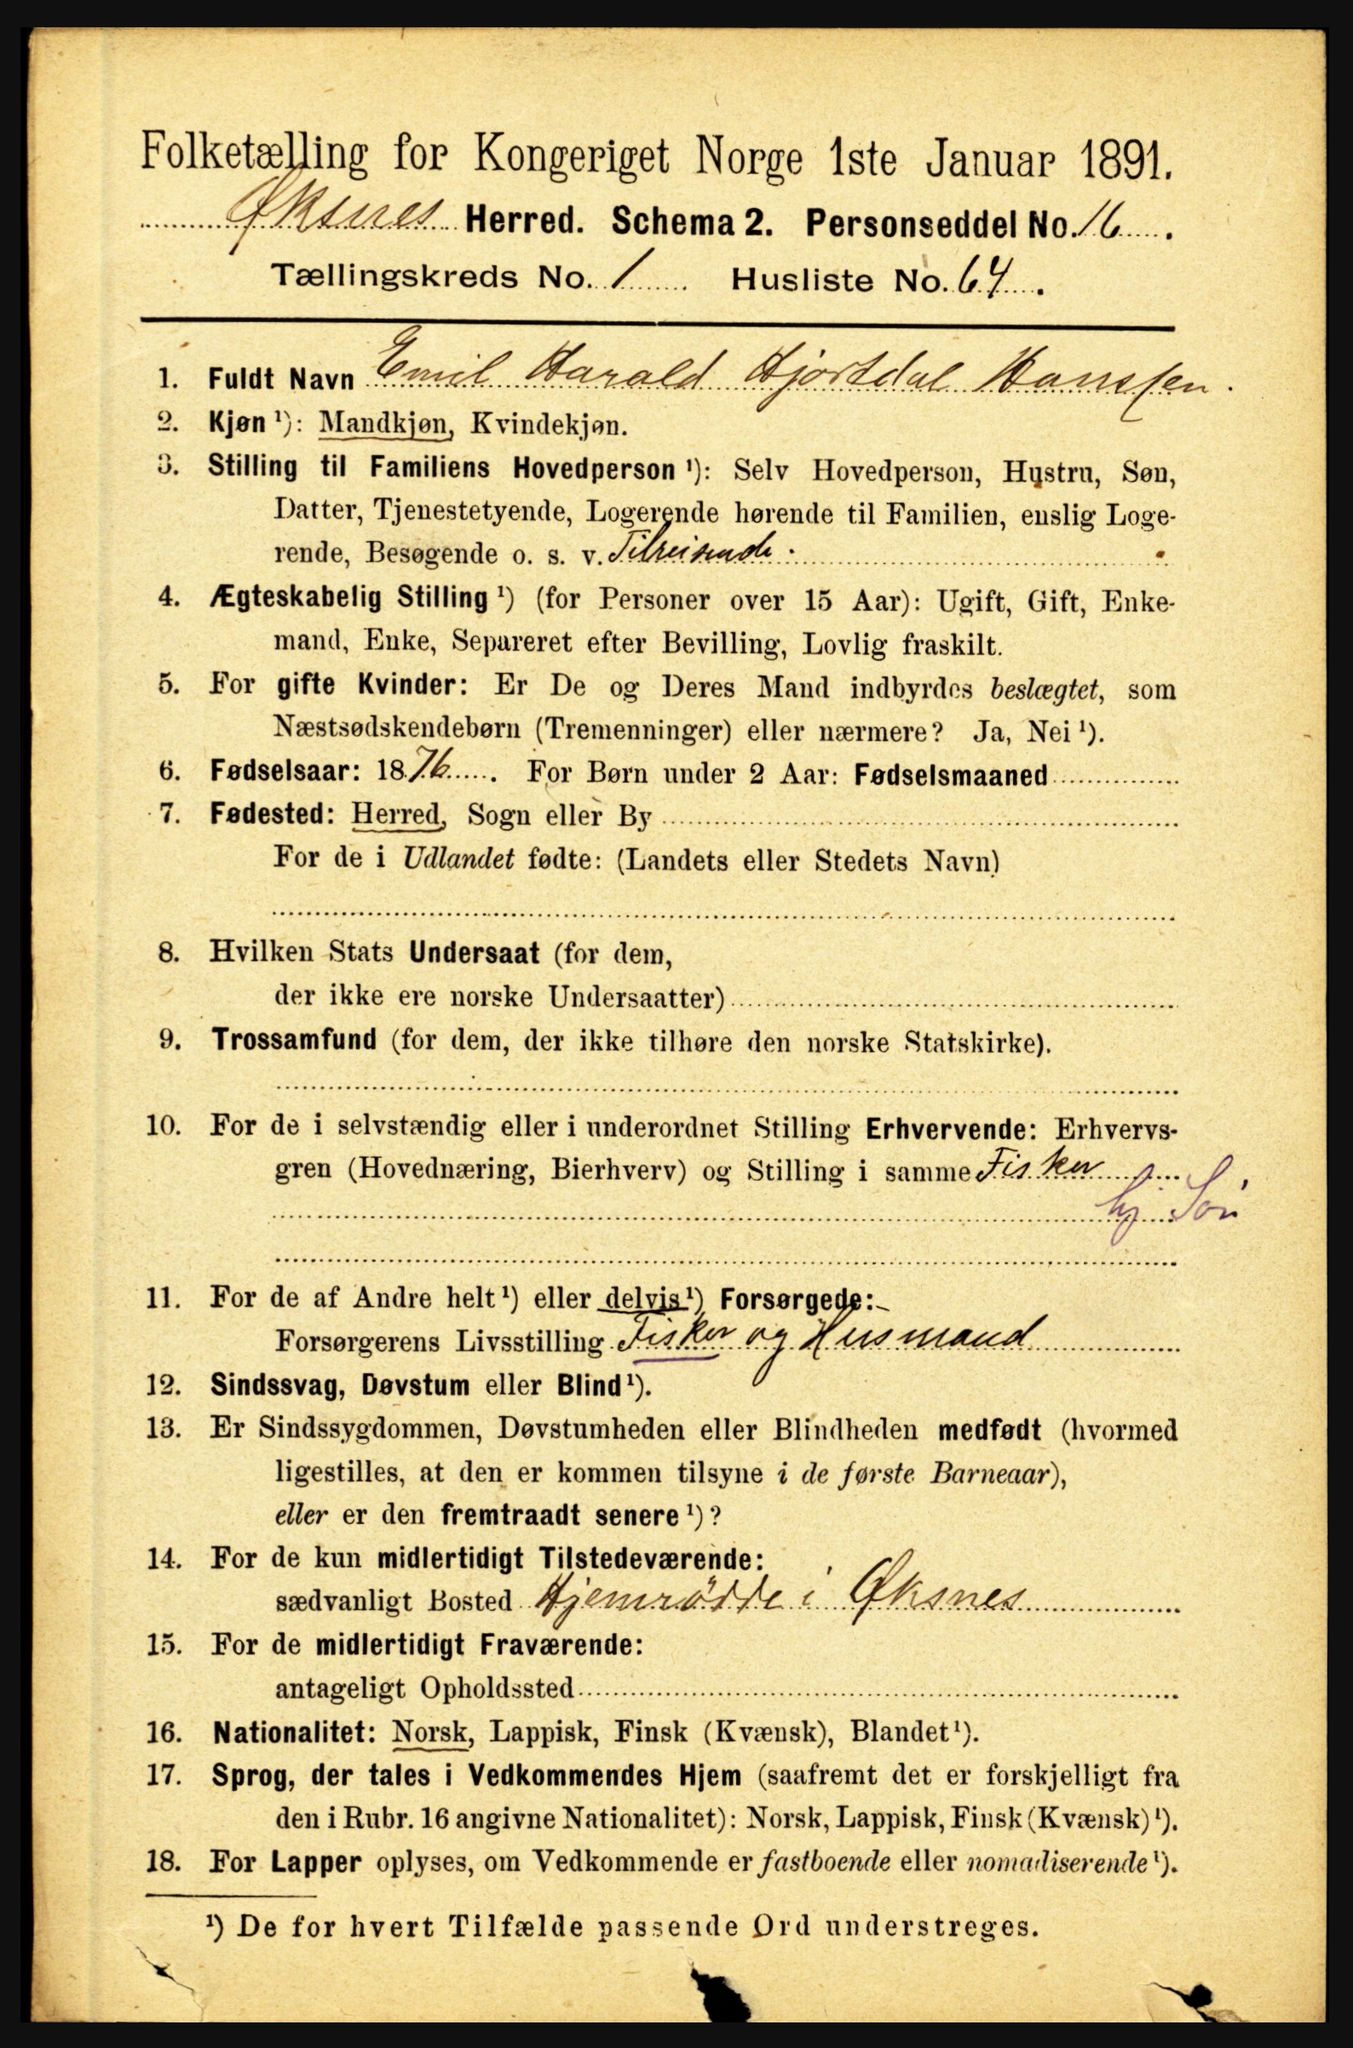 Folketælling for Kongeriget Norge 1ste Januar 1891.
Øksnes Herred. Schema 2. Personseddel No. 16.
Tællingskreds No. 1 Husliste No. 64.
1. Fuldt Navn Emil Harald Hjortdal Hanssen.
2. Kjøn ¹): Mandkjøn, Kvindekjøn.
3. Stilling til Familiens Hovedperson ¹): Selv Hovedperson, Hustru, Søn,
Datter, Tjenestetyende, Logerende hørende til Familien, enslig Loge-
rende, Besøgende o. s. v. Tilreisende.
4. Ægteskabelig Stilling ¹) (for Personer over 15 Aar): Ugift, Gift, Enke-
mand, Enke, Separeret efter Bevilling, Lovlig fraskilt.
5. For gifte Kvinder: Er De og Deres Mand indbyrdes beslægtet, som
Næstsødskendebørn (Tremenninger) eller nærmere? Ja, Nei ¹).
6. Fødselsaar: 1876. For Børn under 2 Aar: Fødselsmaaned
7. Fødested: Herred, Sogn eller By
For de i Udlandet fødte: (Landets eller Stedets Navn)
8. Hvilken Stats Undersaat (for dem,
der ikke ere norske Undersaatter)
9. Trossamfund (for dem, der ikke tilhøre den norske Statskirke).
10. For de i selvstændig eller i underordnet Stilling Erhvervende: Erhvervs-
gren (Hovednæring, Bierhverv) og Stilling i samme Fisker
hj. Søn
11. For de af Andre helt ¹) eller delvis ¹) Forsørgede:
Forsørgerens Livsstilling Fisker og Husmand
12. Sindssvag, Døvstum eller Blind ¹).
13. Er Sindssygdommen, Døvstumheden eller Blindheden medfødt (hvormed
ligestilles, at den er kommen tilsyne i de første Barneaar),
eller er den fremtraadt senere ¹)?
14. For de kun midlertidigt Tilstedeværende:
sædvanligt Bosted Hjemrödde i Øksnes
15. For de midlertidigt Fraværende:
antageligt Opholdssted
16. Nationalitet: Norsk, Lappisk, Finsk (Kvænsk), Blandet ¹).
17. Sprog, der tales i Vedkommendes Hjem (saafremt det er forskjelligt fra
den i Rubr. 16 angivne Nationalitet): Norsk, Lappisk, Finsk (Kvænsk) ¹).
18. For Lapper oplyses, om Vedkommende er fastboende eller nomadiserende ¹).
¹) De for hvert Tilfælde passende Ord understreges.